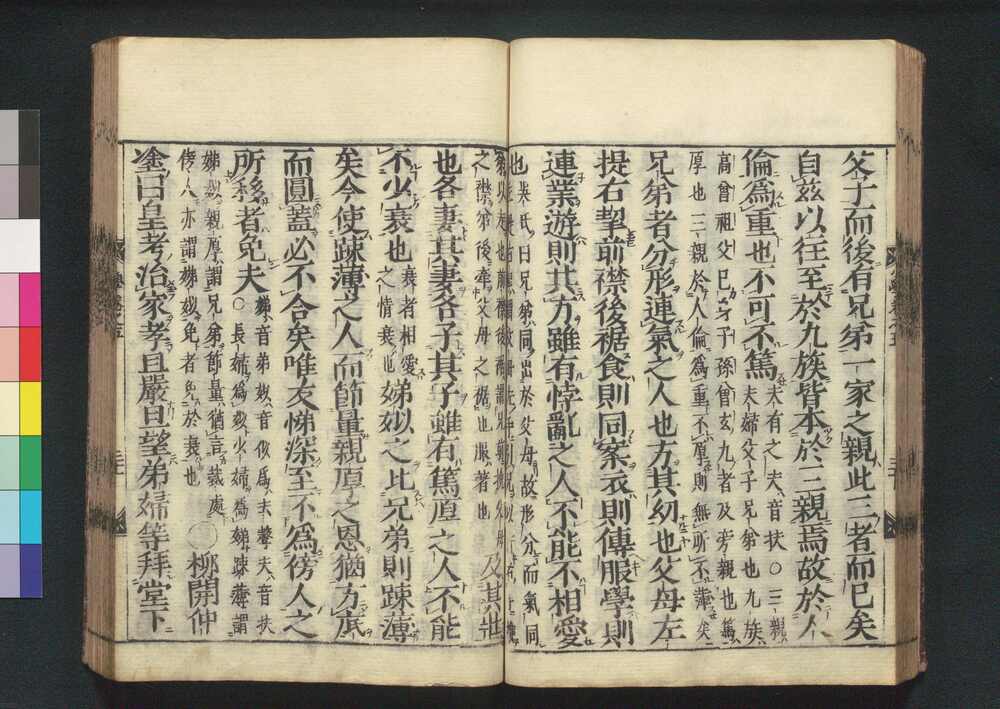 父子而後有兄弟一家之親此三者而已矣
自茲以往至於九族皆本於三親焉故於人
倫爲重也不可不篤夫有之夫音扶○三親夫婦父子兄弟也九族
高曾祖父己身子孫曾玄九者及旁親也篤
厚也三親於人倫爲重不厚則無所不薄矣
兄弟者分形連氣之人也方其幼也父母左
提右挈前襟後裾食則同案衣則傳服學則
連業遊則共方雖有悖亂之人不能不相愛
也吳氏曰兄弟同出於父母故形分而氣同
之襟弟後牽父母之裾也服著也
及其壯
也各妻其妻各子其子雖有篤厚之人不能
不少衰也衰者相愛之情衰也娣姒之比兄弟則疎薄
矣今使疎薄之人而節量親厚之恩猶方底
而圓蓋必不合矣唯友悌深至不爲傍人之
所移者免夫娣音弟姒音似爲去聲夫音扶○長婦爲姒少婦爲娣疎薄謂
娣姒親厚謂兄弟節量猶言裁處
傍人亦謂娣姒免者免於衰也
○柳開仲
塗曰皇考治家孝且嚴旦望弟婦等拜堂下